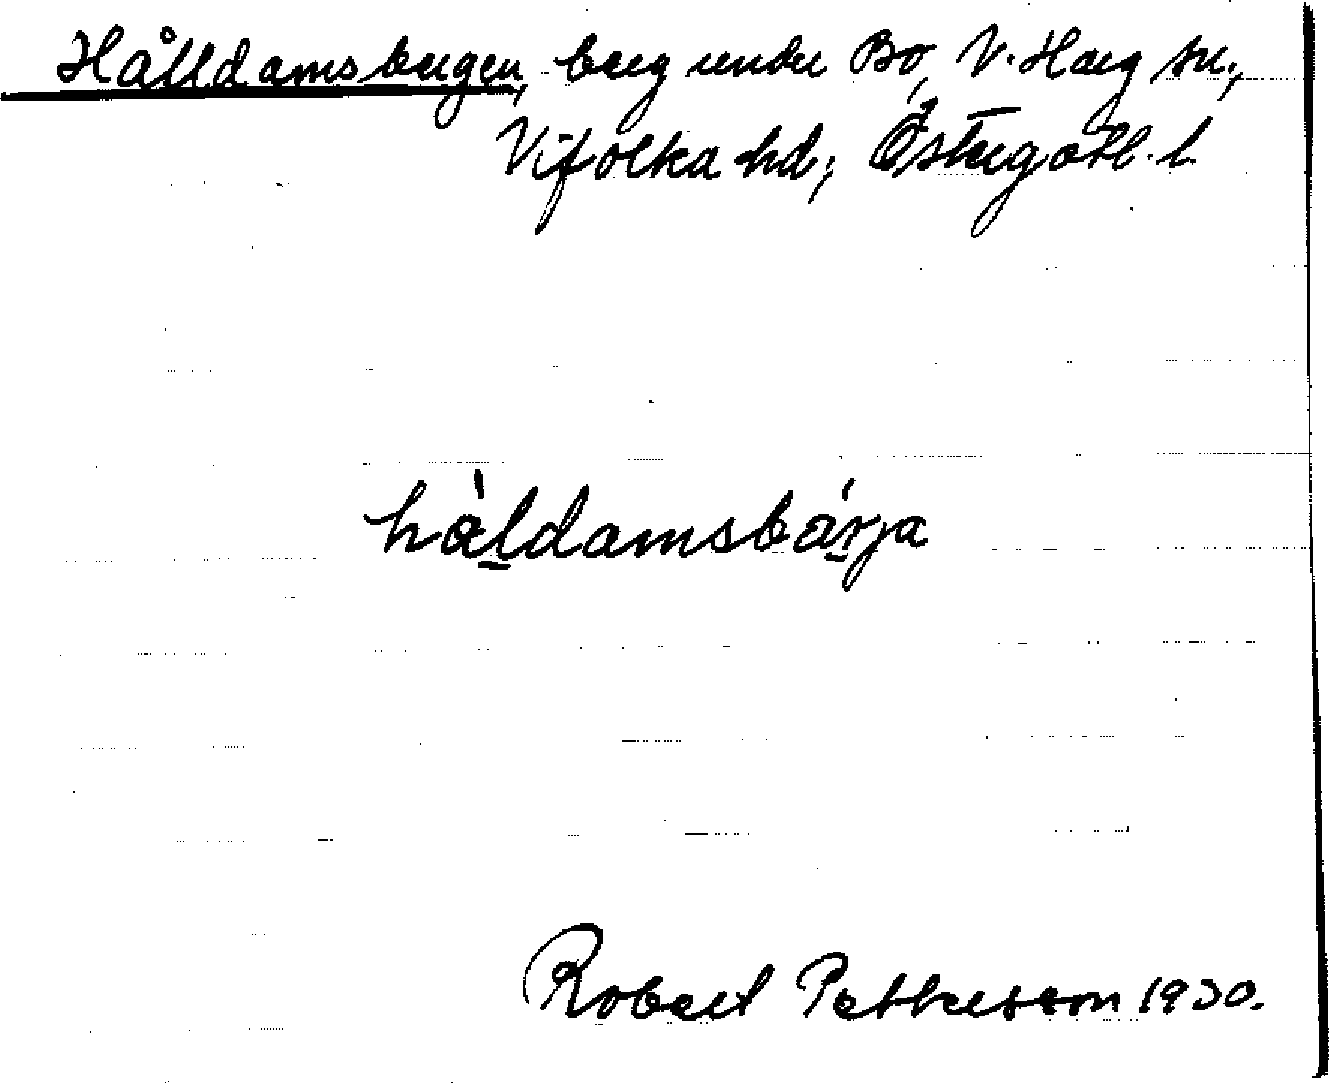 Hålldamsbergen, berg under Bo, V. Harg sn.,
Vifolka hd; Östergötl. l.
håldamsbárja
Robert Pettersson 1930.